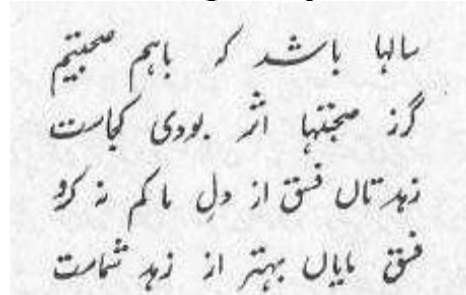 سالہا باشد کہ باہم صحبتیم
گرز صحبتہا اثر بودی کجاست
زہد تاں فسق از دلِ ما کم نہ کرد
فسق مایاں بہتر از زہد شماست